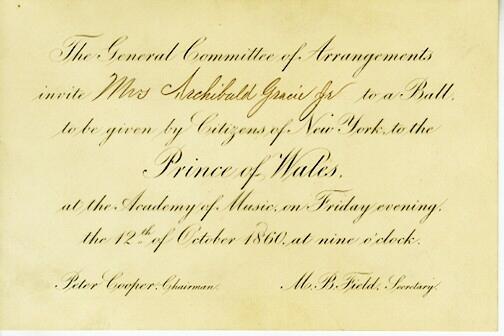 The General Committee of Arrangements
invite Mrs Archibald Gracie Jr to a Ball,
to be given by Citizens of New York, to the
Prince of Wales,
at the Academy of Music, on Friday evening,
the 12th of October 1860, at nine o'clock.
Peter Cooper, Chairman. M. B. Field, Secretary.